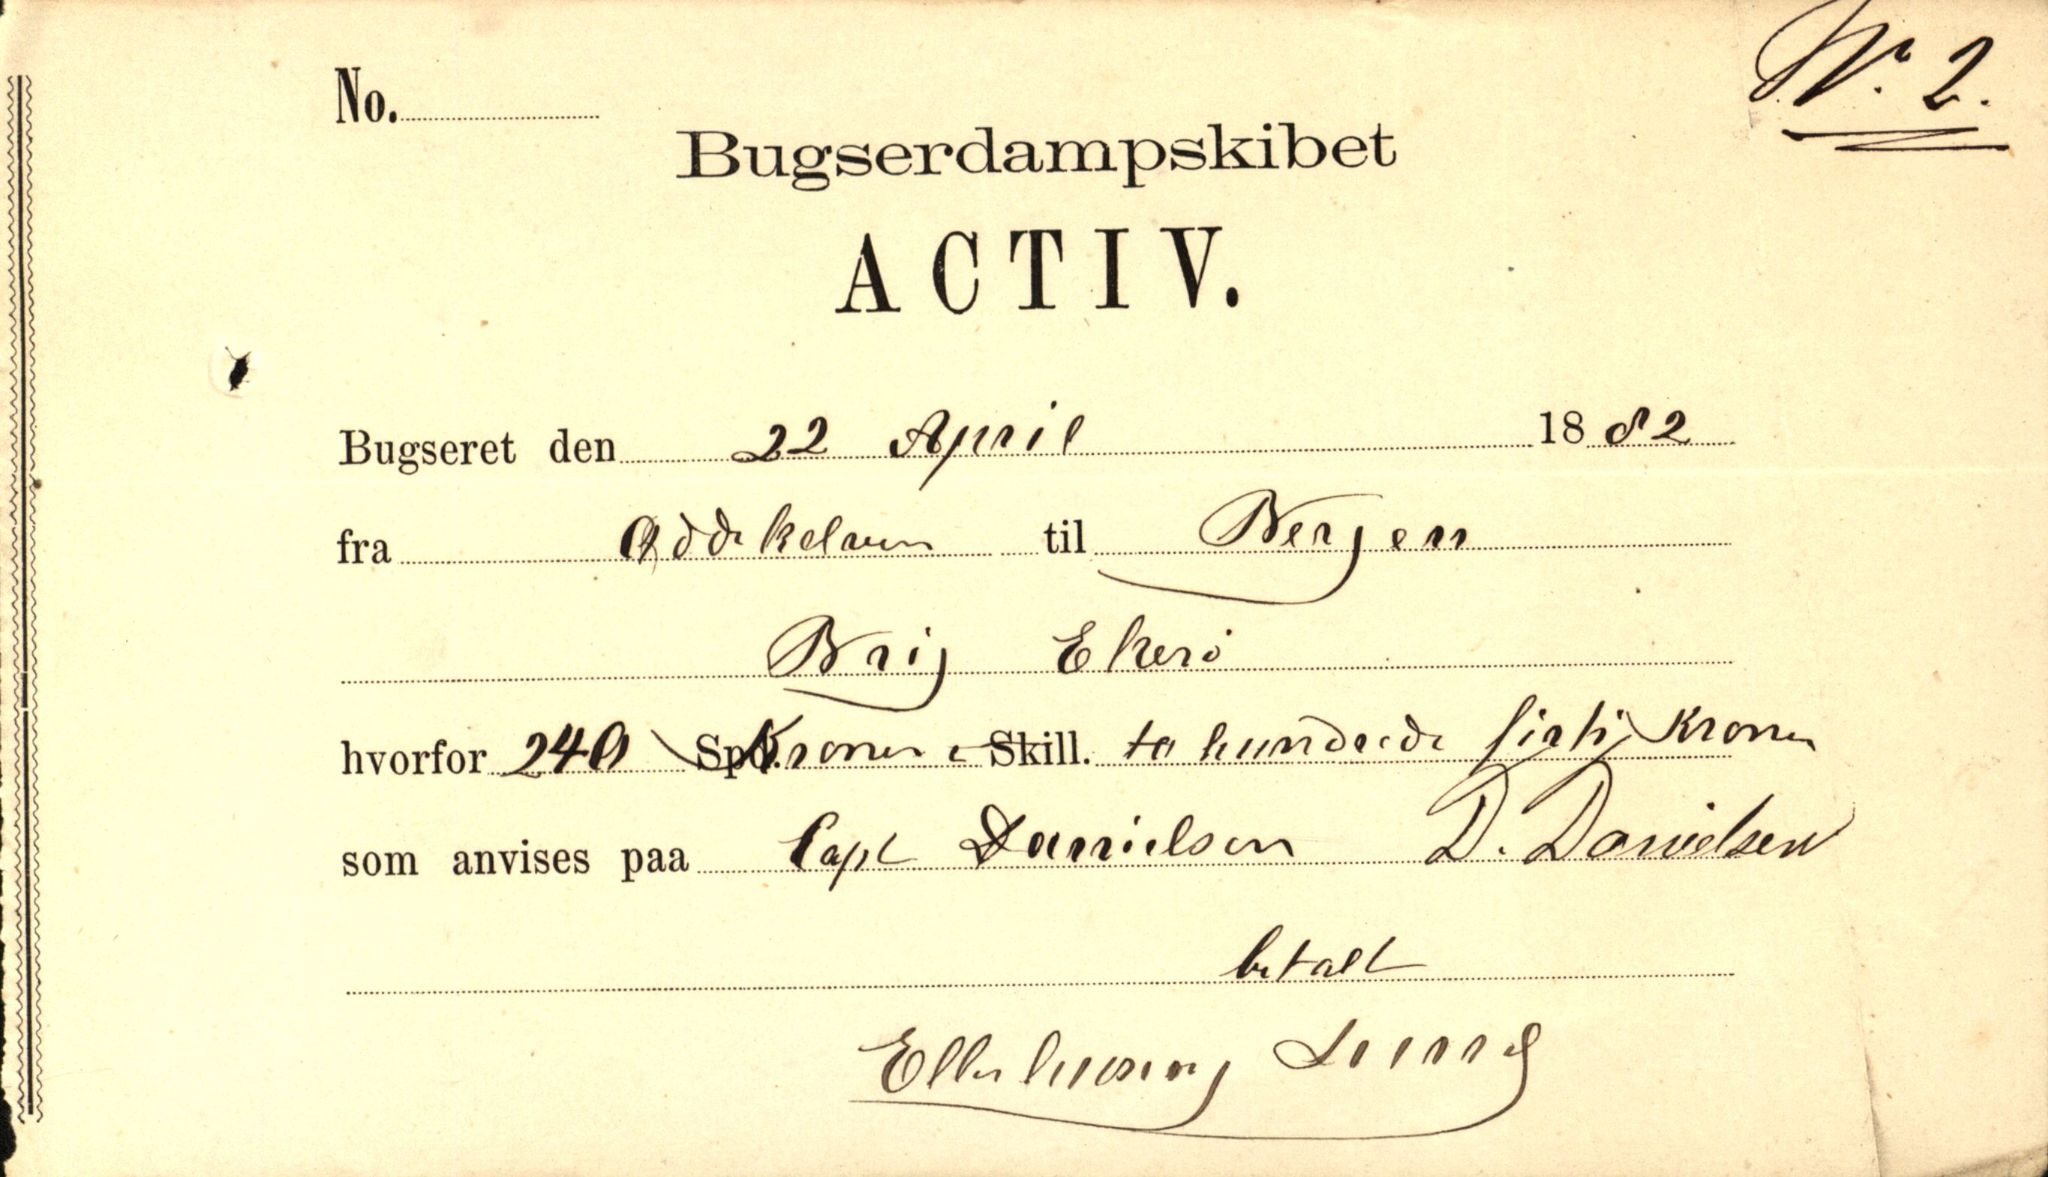 No. No. 2.
Bugserdampskibet
ACTIV.
Bugseret den 22 April 1882
fra til Bergen
Brig Ekerö
hvorfor 240 Spd. Kroner Skill. to hundrede firti Kroner
som anvises paa Capt Danielsen D. Danielsen
betalt